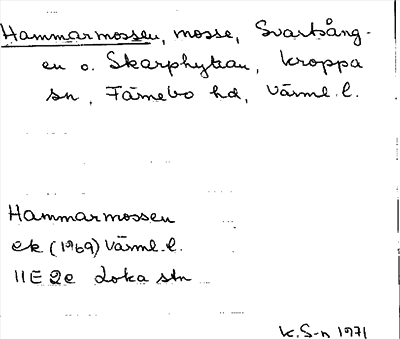 Hammarmossen, mosse, Svartsång-
en o. Skarphyttan, Kroppa
sn, Färnebo hd, Värml. l.
Hammarmossen
ek (1969) Värml. l.
11E 2e Loka stn
K. S-n 1971